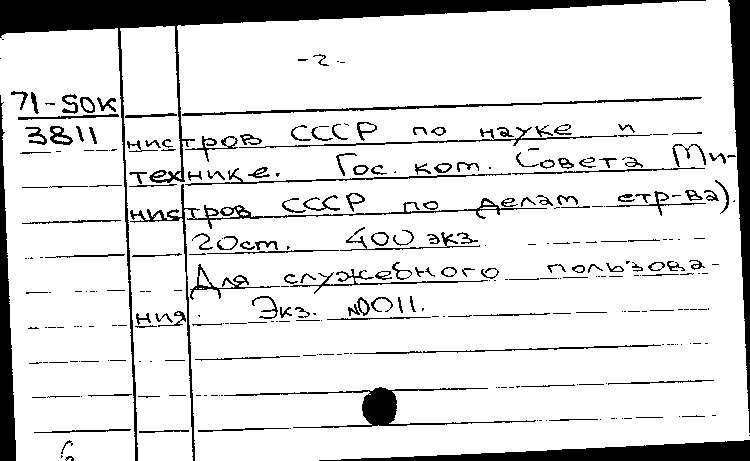 -2-
71-SOK
3811 нистров СССР по науке и
технике. Гос. ком. Совета Ми-
нистров СССР по делам стр-ва).
20ст. 400 экз.
Для служебного пользова-
ния. Экз. №0011.